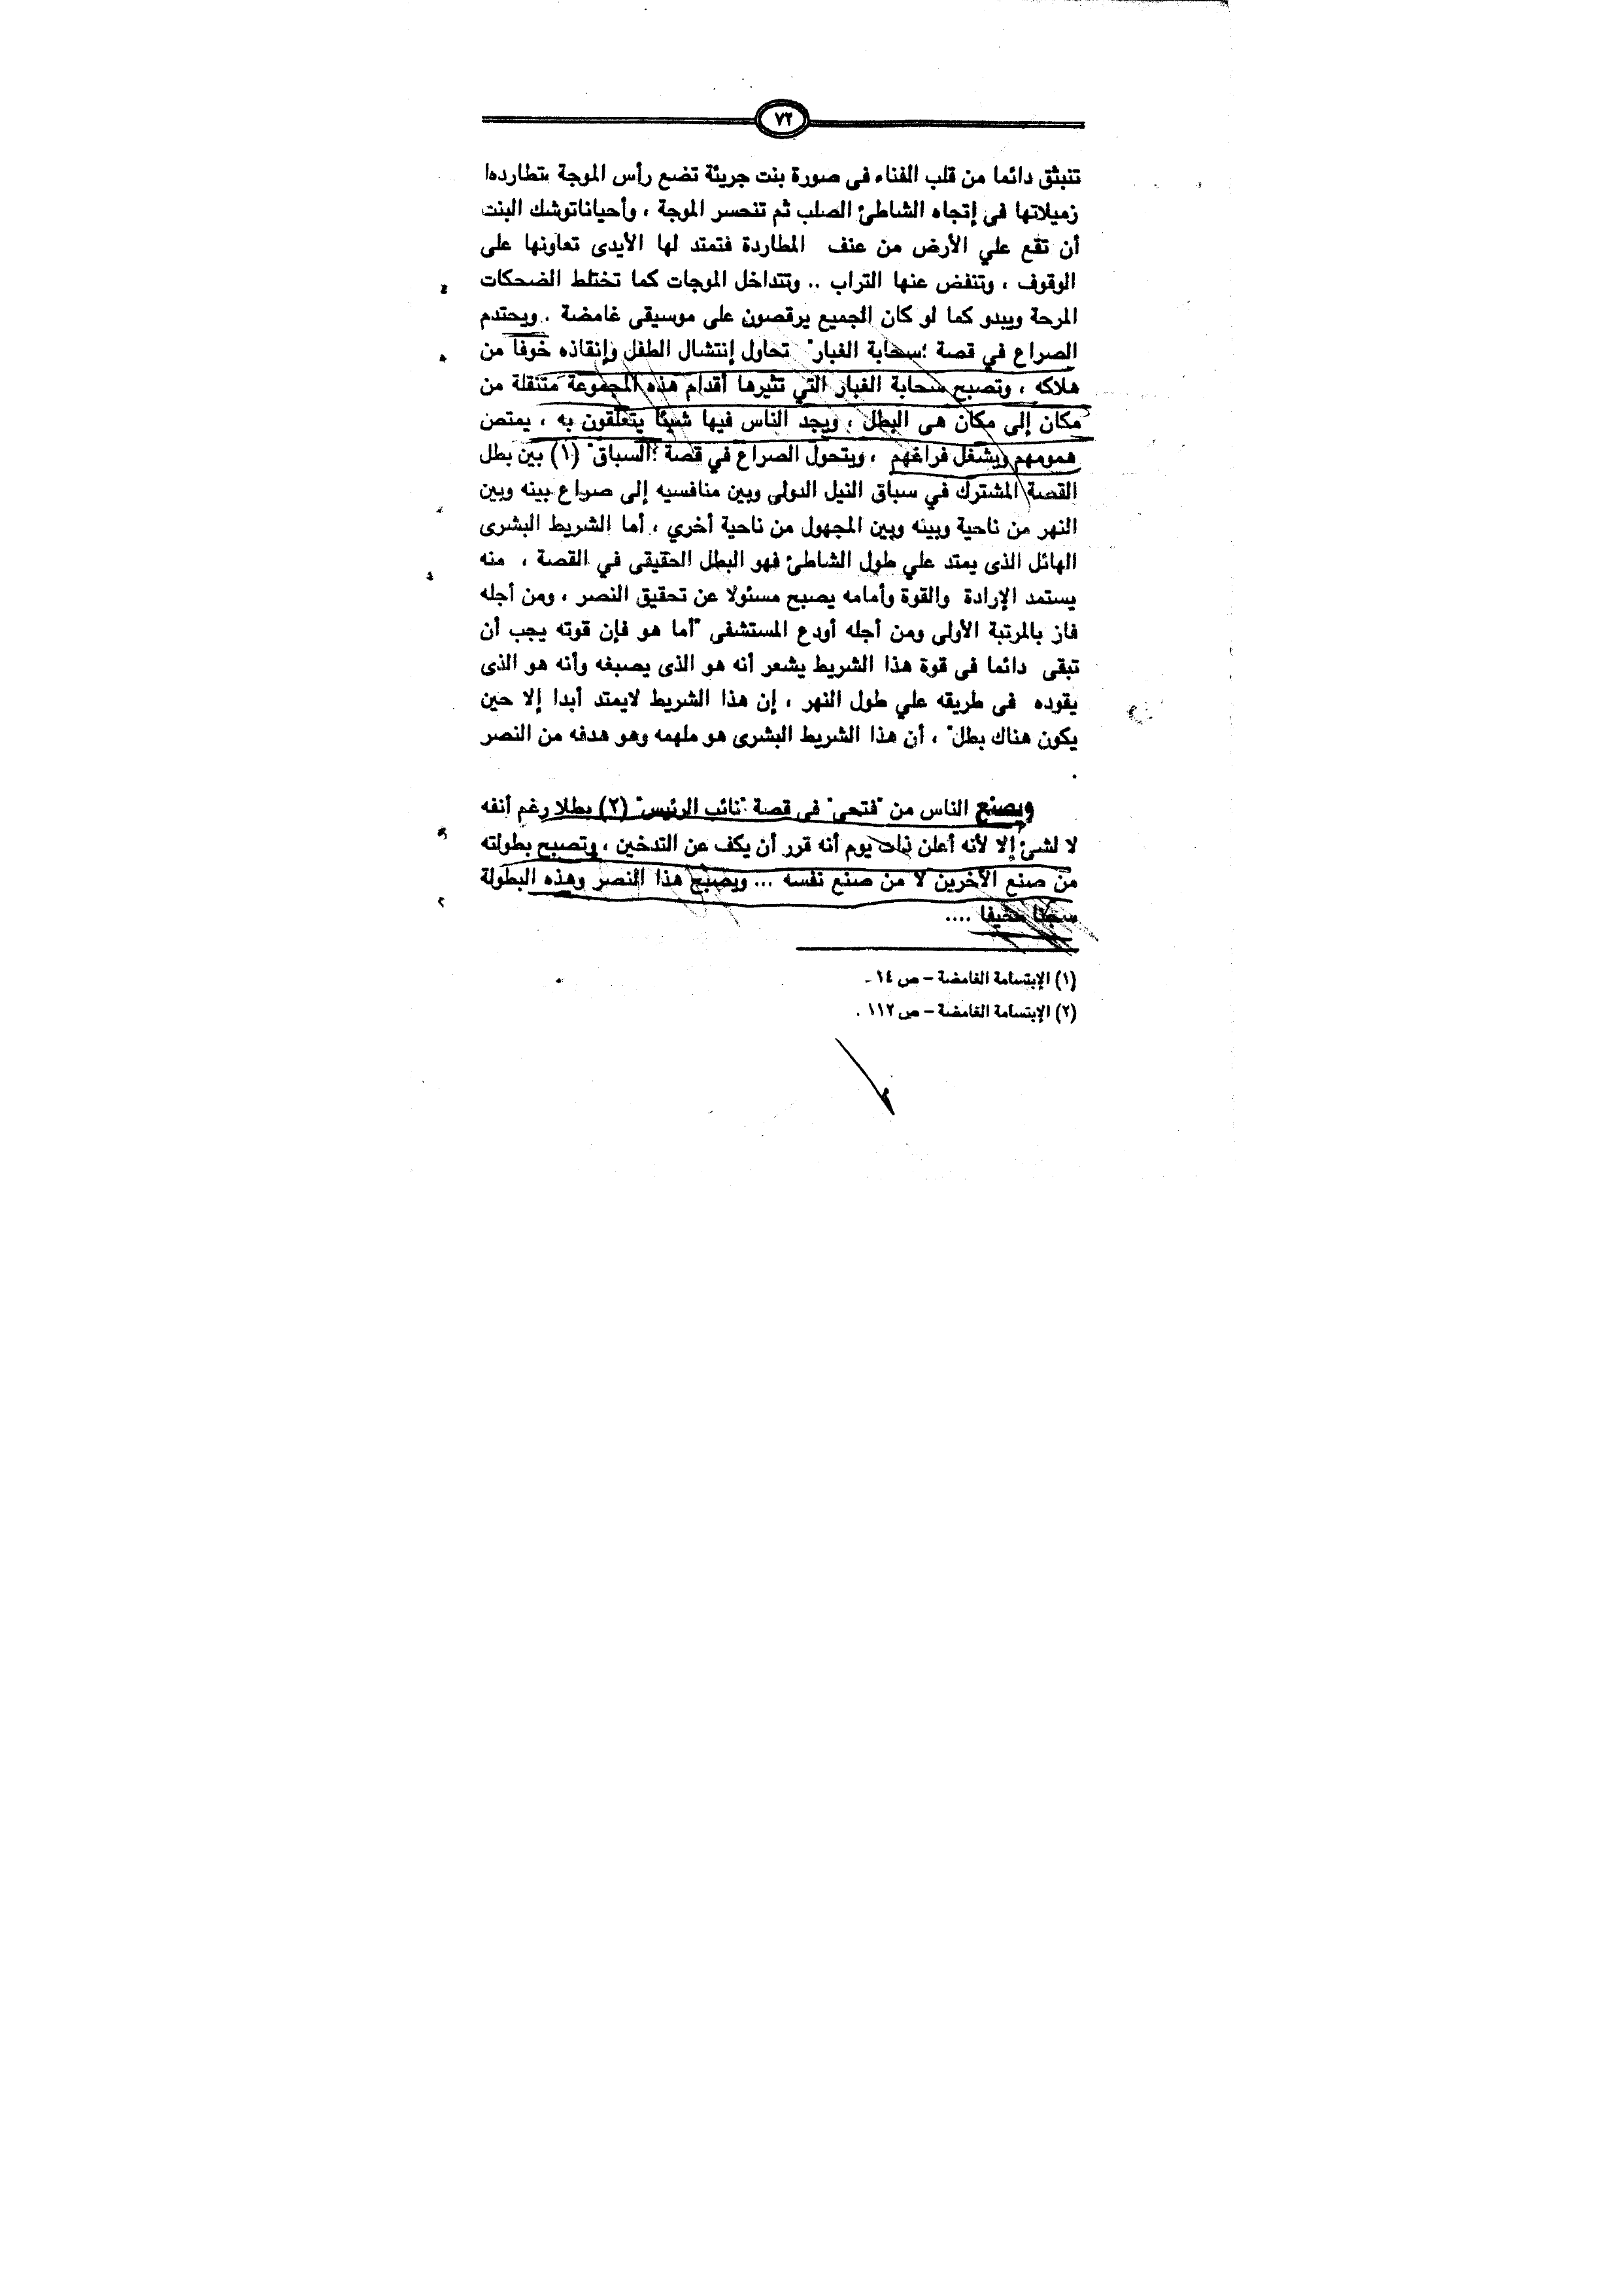 ٧٢
تنبثق دائما من قلب الفناء فى صورة بنت جريئة تضع رأس الموجة بتطاردها
زميلاتها فى إتجاه الشاطئ الصلب ثم تنحسر الموجة ، وأحياناتوشك البنت
أن تقع علي الأرض من عنف المطاردة فتمتد لها الأيدى تعاونها على
الوقوف ، وتنفض عنها التراب .. وتتداخل الموجات كما تختلط الضحكات
المرحة ويبدو كما لو كان الجميع يرقصون على موسيقى غامضة . ويحتدم
الصراع في قصة "سحابة الغبار" تحاول إنتشال الطفل وإنقاذه خوفا من
هلاكه ، وتصبح سحابة الغبار التي تثيرها أقدام هذه المجموعة متنقلة من
مكان إلى مكان هى البطل ، ويجد الناس فيها شيئا يتعلقون به ، يمتص
همومهم ويشغل فراغهم ، ويتحول الصراع في قصة "السباق" (١) بين بطل
القصة المشترك في سباق النيل الدولى وبين منافسيه إلى صراع بينه وبين
النهر من ناحية وبينه وبين المجهول من ناحية أخري ، أما الشريط البشرى
الهائل الذى يمتد علي طول الشاطئ فهو البطل الحقيقى في القصة ، منه
يستمد الإرادة والقوة وأمامه يصبح مسئولا عن تحقيق النصر ، ومن أجله
فاز بالمرتبة الأولى ومن أجله أودع المستشفى "أما هو فإن قوته يجب أن
تبقى دائما فى قوة هذا الشريط يشعر أنه هو الذى يصبغه وأنه هو الذى
يقوده فى طريقه علي طول النهر ، إن هذا الشريط لايمتد أبدا إلا حين
يكون هناك بطل" ، أن هذا الشريط البشرى هو ملهمه وهو هدفه من النصر
.
ويصنع الناس من "فتحى" فى قصة "نائب الرئيس" (٢) بطلا رغم أنفه
لا لشئ إلا لأنه أعلن ذات يوم أنه قرر أن يكف عن التدخين ، وتصبح بطولته
من صنع الآخرين لا من صنع نفسه ... ويصبح هذا النصر وهذه البطولة
سجنا مخيفا ....
(١) الإبتسامة الغامضة – ص ١٤ .
(٢) الإبتسامة الغامضة – ص ١١٢ .